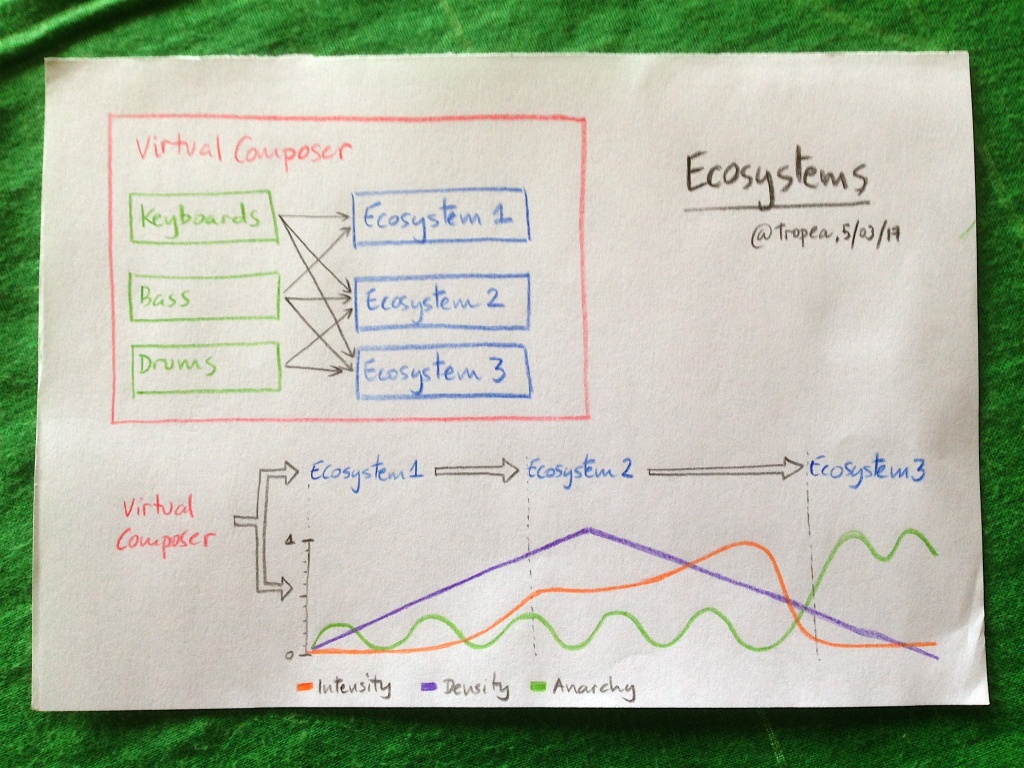 Virtual Composer
Keyboards
Ecosystem 1
Bass
Ecosystem 2
Drums
Ecosystem 3
Ecosystems
@tropea, 5/03/17
Ecosystem 1
Ecosystem 2
Ecosystem 3
Virtual
Composer
1
0
Intensity
Density
Anarchy